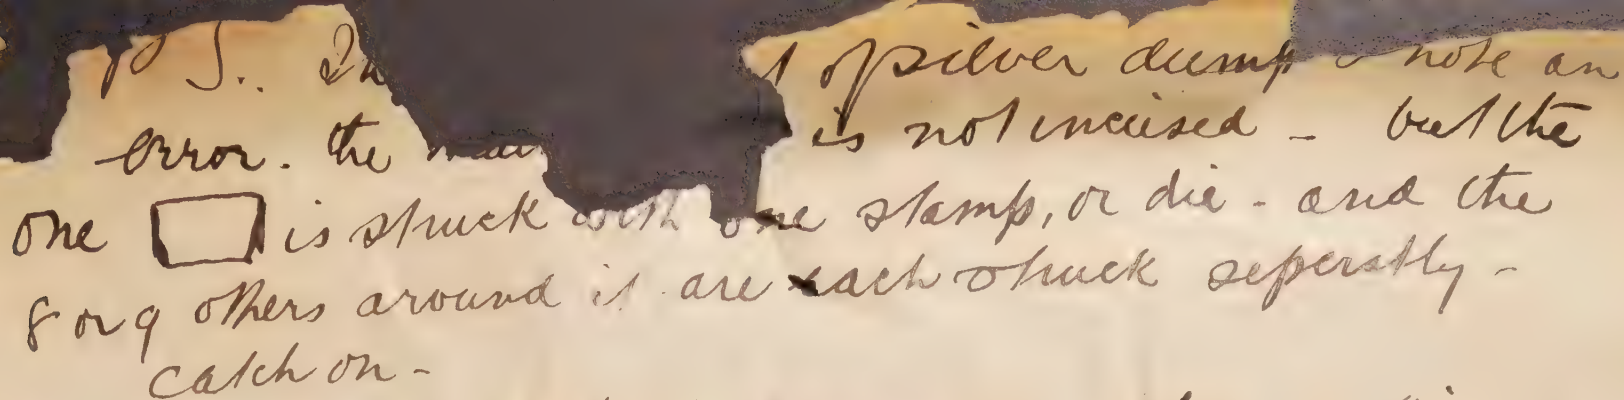 P S.. In of silver dump I note an
error. the is not incused - but the
one is struck with one stamp, or die - and the
8 or 9 others around it are each struck seperatly -
catch on -